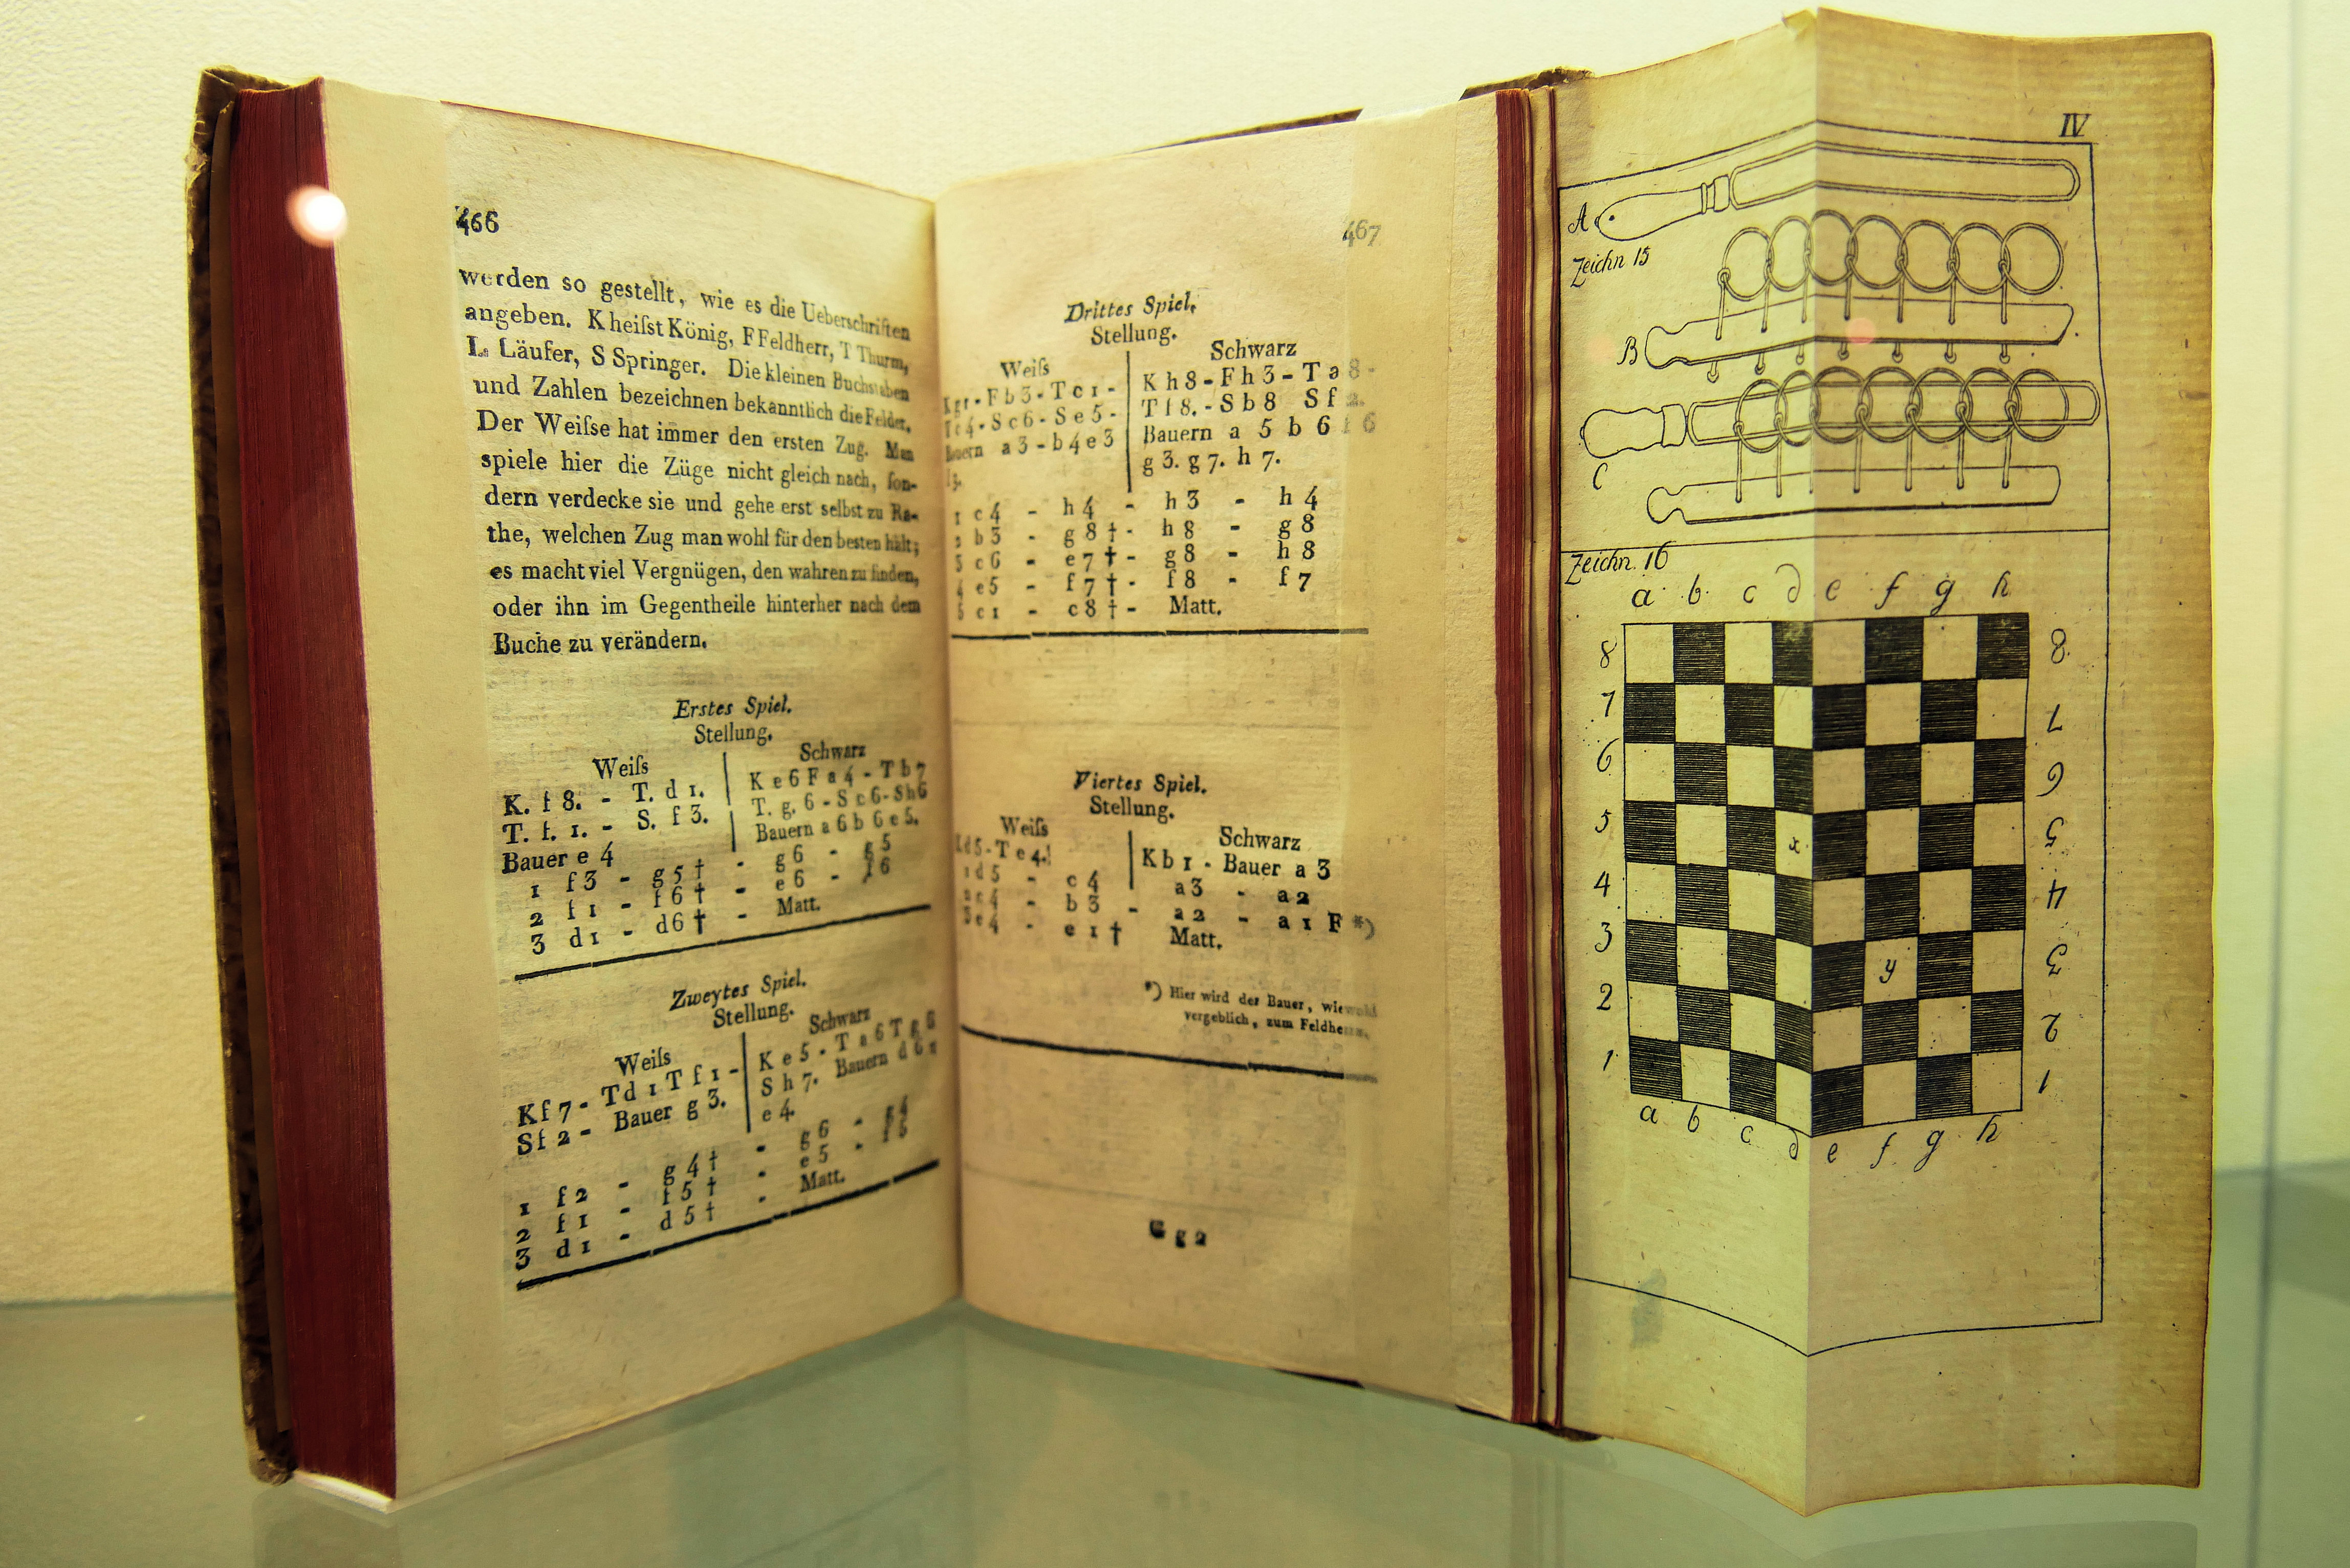 466
werden so gestellt, wie es die Ueberschriften
angeben. K heiſst König, F Feldherr, T Thurm,
L Läufer, S Springer. Die kleinen Buchstaben
und Zahlen bezeichnen bekanntlich die Felder.
Der Weiſse hat immer den ersten Zug. Man
spiele hier die Züge nicht gleich nach, ſon-
dern verdecke sie und gehe erst selbst zu Ra-
the, welchen Zug man wohl für den besten hält;
es macht viel Vergnügen, den wahren zu finden,
oder ihn im Gegentheile hinterher nach dem
Buche zu verändern.
Erstes Spiel.
Stellung.
Weiſs
K. f 8. - T. d 1.
T. f. 1. - S. f 3.
Bauer e 4
Schwarz
K e 6 F a 4 - T b 7
T. g. 6 - S c 6 - S h 6
Bauern a 6 b 6 e 5.
1 f 3 - g 5 † - g 6 - g 5
2 f 1 - f 6 † - e 6 - f 6
3 d 1 - d 6 † - Matt.
Zweytes Spiel.
Stellung.
Weiſs
K f 7 - T d 1 T f 1 -
S f 2 - Bauer g 3.
Schwarz
K e 5 - T a 6 T g 6
S h 7. Bauern d 6
e 4.
1 f 2 - g 4 † - g 6 - g 4
2 f 1 - f 5 † - e 5 - f 5
3 d 1 - d 5 † - Matt.
467
Drittes Spiel.
Stellung.
Weiſs
K g 1 - F b 3 - T c 1 -
T c 4 - S c 6 - S e 5 -
Bauern a 3 - b 4 e 3
Schwarz
K h 8 - F h 3 - T a 8 -
T f 8. - S b 8 S f
Bauern a 5 b 6 f 6
g 3. g 7. h 7.
1 c 4 - h 4 - h 3 - h 4
2 b 3 - g 8 † - h 8 - g 8
3 c 6 - e 7 † - g 8 - h 8
4 e 5 - f 7 † - f 8 - f 7
5 c 1 - c 8 † - Matt.
Viertes Spiel.
Stellung.
Weiſs
K d 5 - T e 4.
Schwarz
K b 1 - Bauer a 3
1 d 5 - c 4 a 3 - a 2
2 c 4 - b 3 - a 2 - a 1 F *)
3 e 4 - e 1 † Matt.
*) Hier wird der Bauer, wiewohl
vergeblich, zum Feldherrn.
G g 2
IV
A
Zeichn 15
B
C
Zeichn. 16
a b c d e f g h
8 8
7 7
6 6
5 x 5
4 4
3 y 3
2 2
1 1
a b c d e f g h